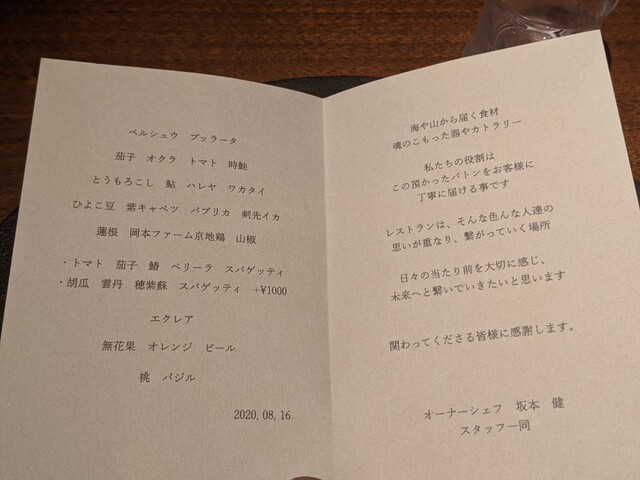 ペルシュウ ブッラータ
茄子 オクラ トマト 時鮭
とうもろこし 鮎 ハレヤ ワカタイ
ひよこ豆 紫キャベツ パプリカ 剣先イカ
蓮根 岡本ファーム京地鶏 山椒
・トマト 茄子 鰆 ペリーラ スパゲッティ
・胡瓜 雲丹 穂紫蘇 スパゲッティ +¥1000
エクレア
無花果 オレンジ ビール
桃 バジル
2020,08,16
海や山から届く食材
魂のこもった器やカトラリー
私たちの役割は
この預かったバトンをお客様に
丁寧に届ける事です
レストランは、そんな色んな人達の
思いが重なり、繋がっていく場所
日々の当たり前を大切に感じ、
未来へと繋いでいきたいと思います
関わってくださる皆様に感謝します。
オーナーシェフ 坂本 健
スタッフ一同